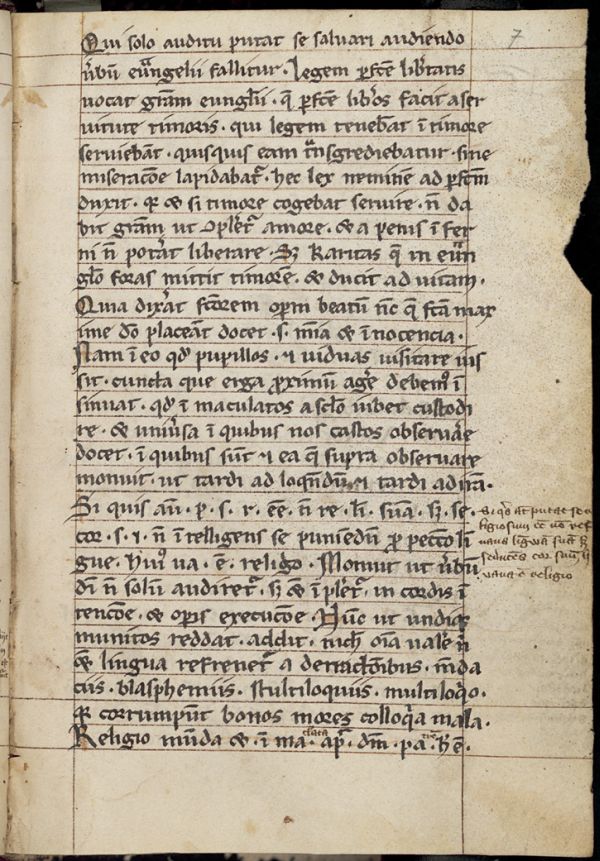 7
Qui solo auditu putat se saluari audiendo
ũbũ euãngelii fallitur · Legem ꝑfcte libertatis
uocat gr̃am eungl̃ii · q̃ ꝑfcte lib̾os facit a ser
uitute timoris · qui legem teneb̃at ĩ timore
seruieb̃ant · quisquis eam tãnsgrediebatur · sine
miseracõe lapidabat̃ · hec lex neminẽ ad ꝑfctm̃
duxit · qꝛ & si timore cogebat seruire · ñ da
bit gr̃am ut ꝯplet̃ amore · & a penis ĩfer
ni ñ pot̾at liberare · Sꝫ karitas q̃ in euãn
gl̃o foras mittit timorẽ · & ducit ad uitam ·
Quia dix̾at fctorem oper̃m beatũ nc̃ q̃ fctã max
ime dõ placeãnt docet · s · mĩa & ĩnocencia ·
Nam ĩ eo qd̾ pupillos · & uiduas uisitare ius
sit · cuncta que erga ꝓximũ ag̾e debemꝰ ĩ
sinuat · qd̾ ĩ maculatos a scl̃o iubet custodi
re · & uniu̾sa ĩ quibus nos castos obseruar̾e
docet · ĩ quibus sunt & ea q̃ supra obseruare
monuit · ut tardi ad loqñdũ & tardi ad irã ·
Si quis aũ · p · s · r · eẽ · ñ re · li · suã · sꝫ · se
cor · s · i · ñ ĩtelligens se puniedũ ꝓ peccõ lĩ
gue · huiꝰ ua · ẽ · religo · Monuit ut ũbũ
dĩ ñ solũ audiret̃ · sꝫ & ĩplet̃ · in cordis ĩ
tencõe · & opis execucõe · Hũc ut undiqꝫ
munitos reddat · addit · nich̾ oĩa uale ñ
& lingua refrenet̃ a detractõibus · mẽda
ciis · blasphemiis · stultiloquiis · multiloq̾o ·
qꝛ corrumpũt bonos mores colloq̃a mala ·
Religio mũda & ĩ ma clata · apr̃ · dm̃ · pa tre · hẽ ·
Si q̾s at̃ putat se re
ligiosum eẽ nõ ref
nans ligwã suã sꝫ
seducẽs cor suũ hꝰ
uana ẽ religio